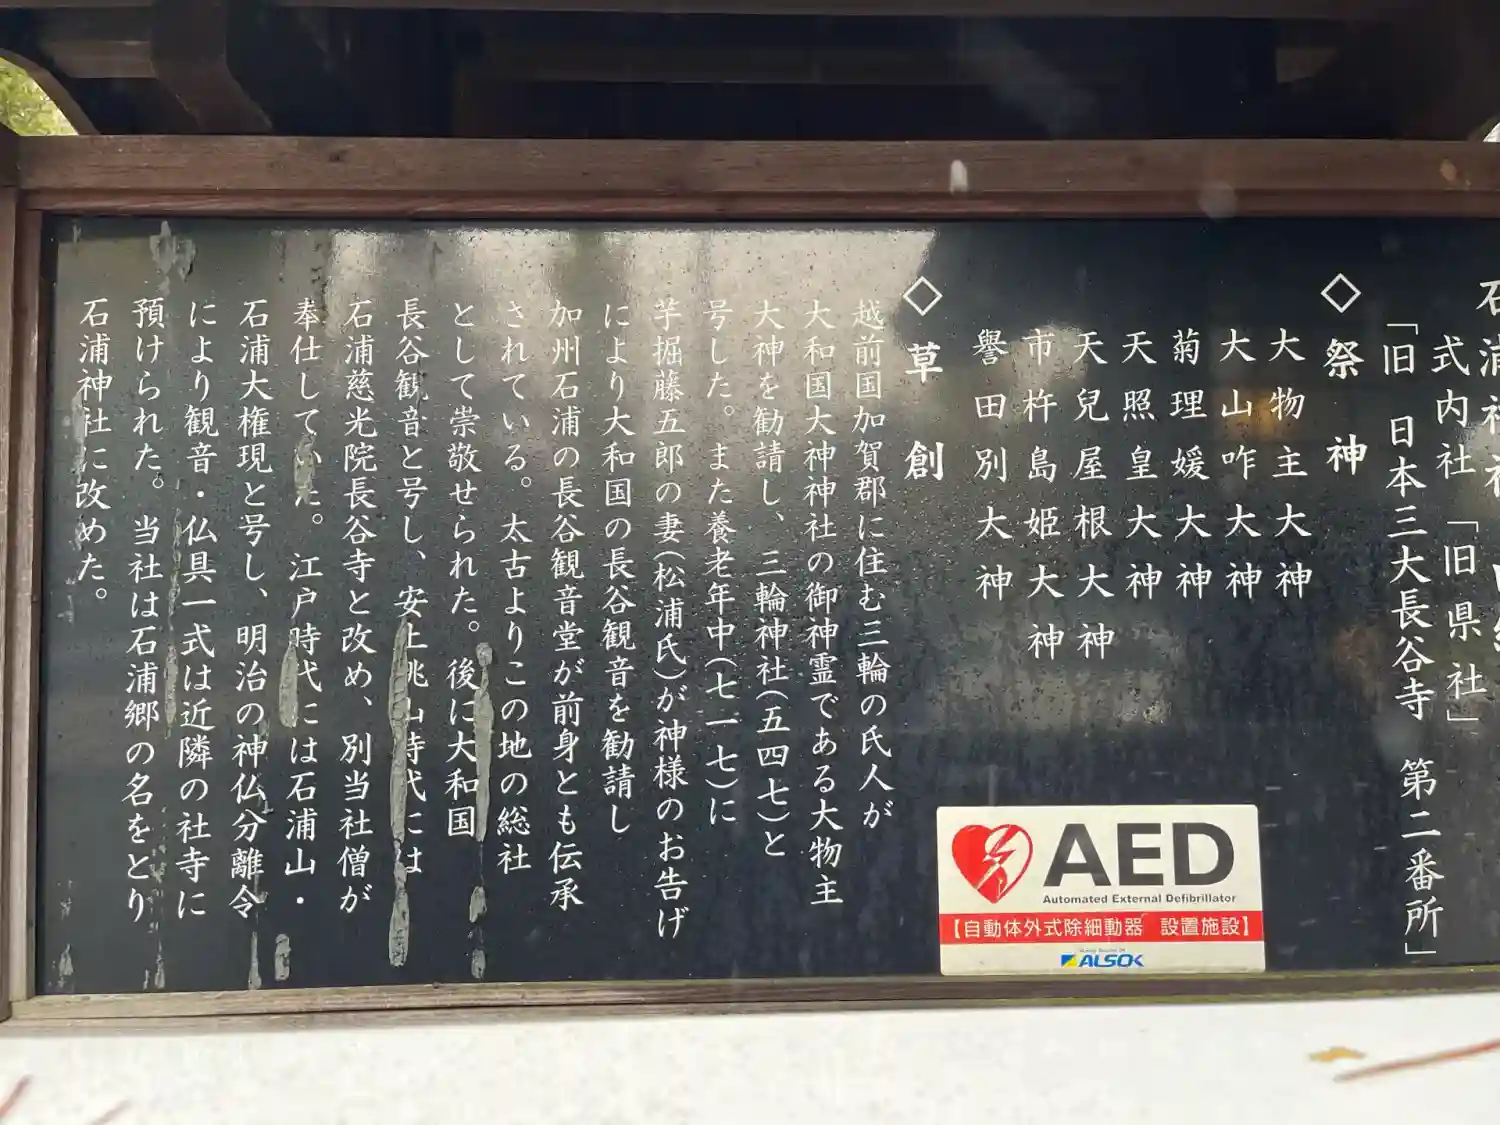 式内社 「旧県社」
「旧 日本三大長谷寺 第二番所」
◇祭神
大物主大神
大山咋大神
菊理媛大神
天照皇大神
天兒屋根大神
市杵島姫大神
譽田別大神
◇草創
越前国加賀郡に住む三輪の氏人が
大和国大神神社の御神霊である大物主
大神を勧請し、三輪神社(五四七)と
号した。また養老年中(七一七)に
芋掘藤五郎の妻(松浦氏)が神様のお告げ
により大和国の長谷観音を勧請し
加州石浦の長谷観音堂が前身とも伝承
されている。太古よりこの地の総社
として崇敬せられた。後に大和国
長谷観音と号し、安土桃山時代には
石浦慈光院長谷寺と改め、別当社僧が
奉仕していた。江戸時代には石浦山・
石浦大権現と号し、明治の神仏分離令
により観音・仏具一式は近隣の社寺に
預けられた。当社は石浦郷の名をとり
石浦神社に改めた。
AED
Automated External Defibrillator
【自動体外式除細動器 設置施設】
ALSOK